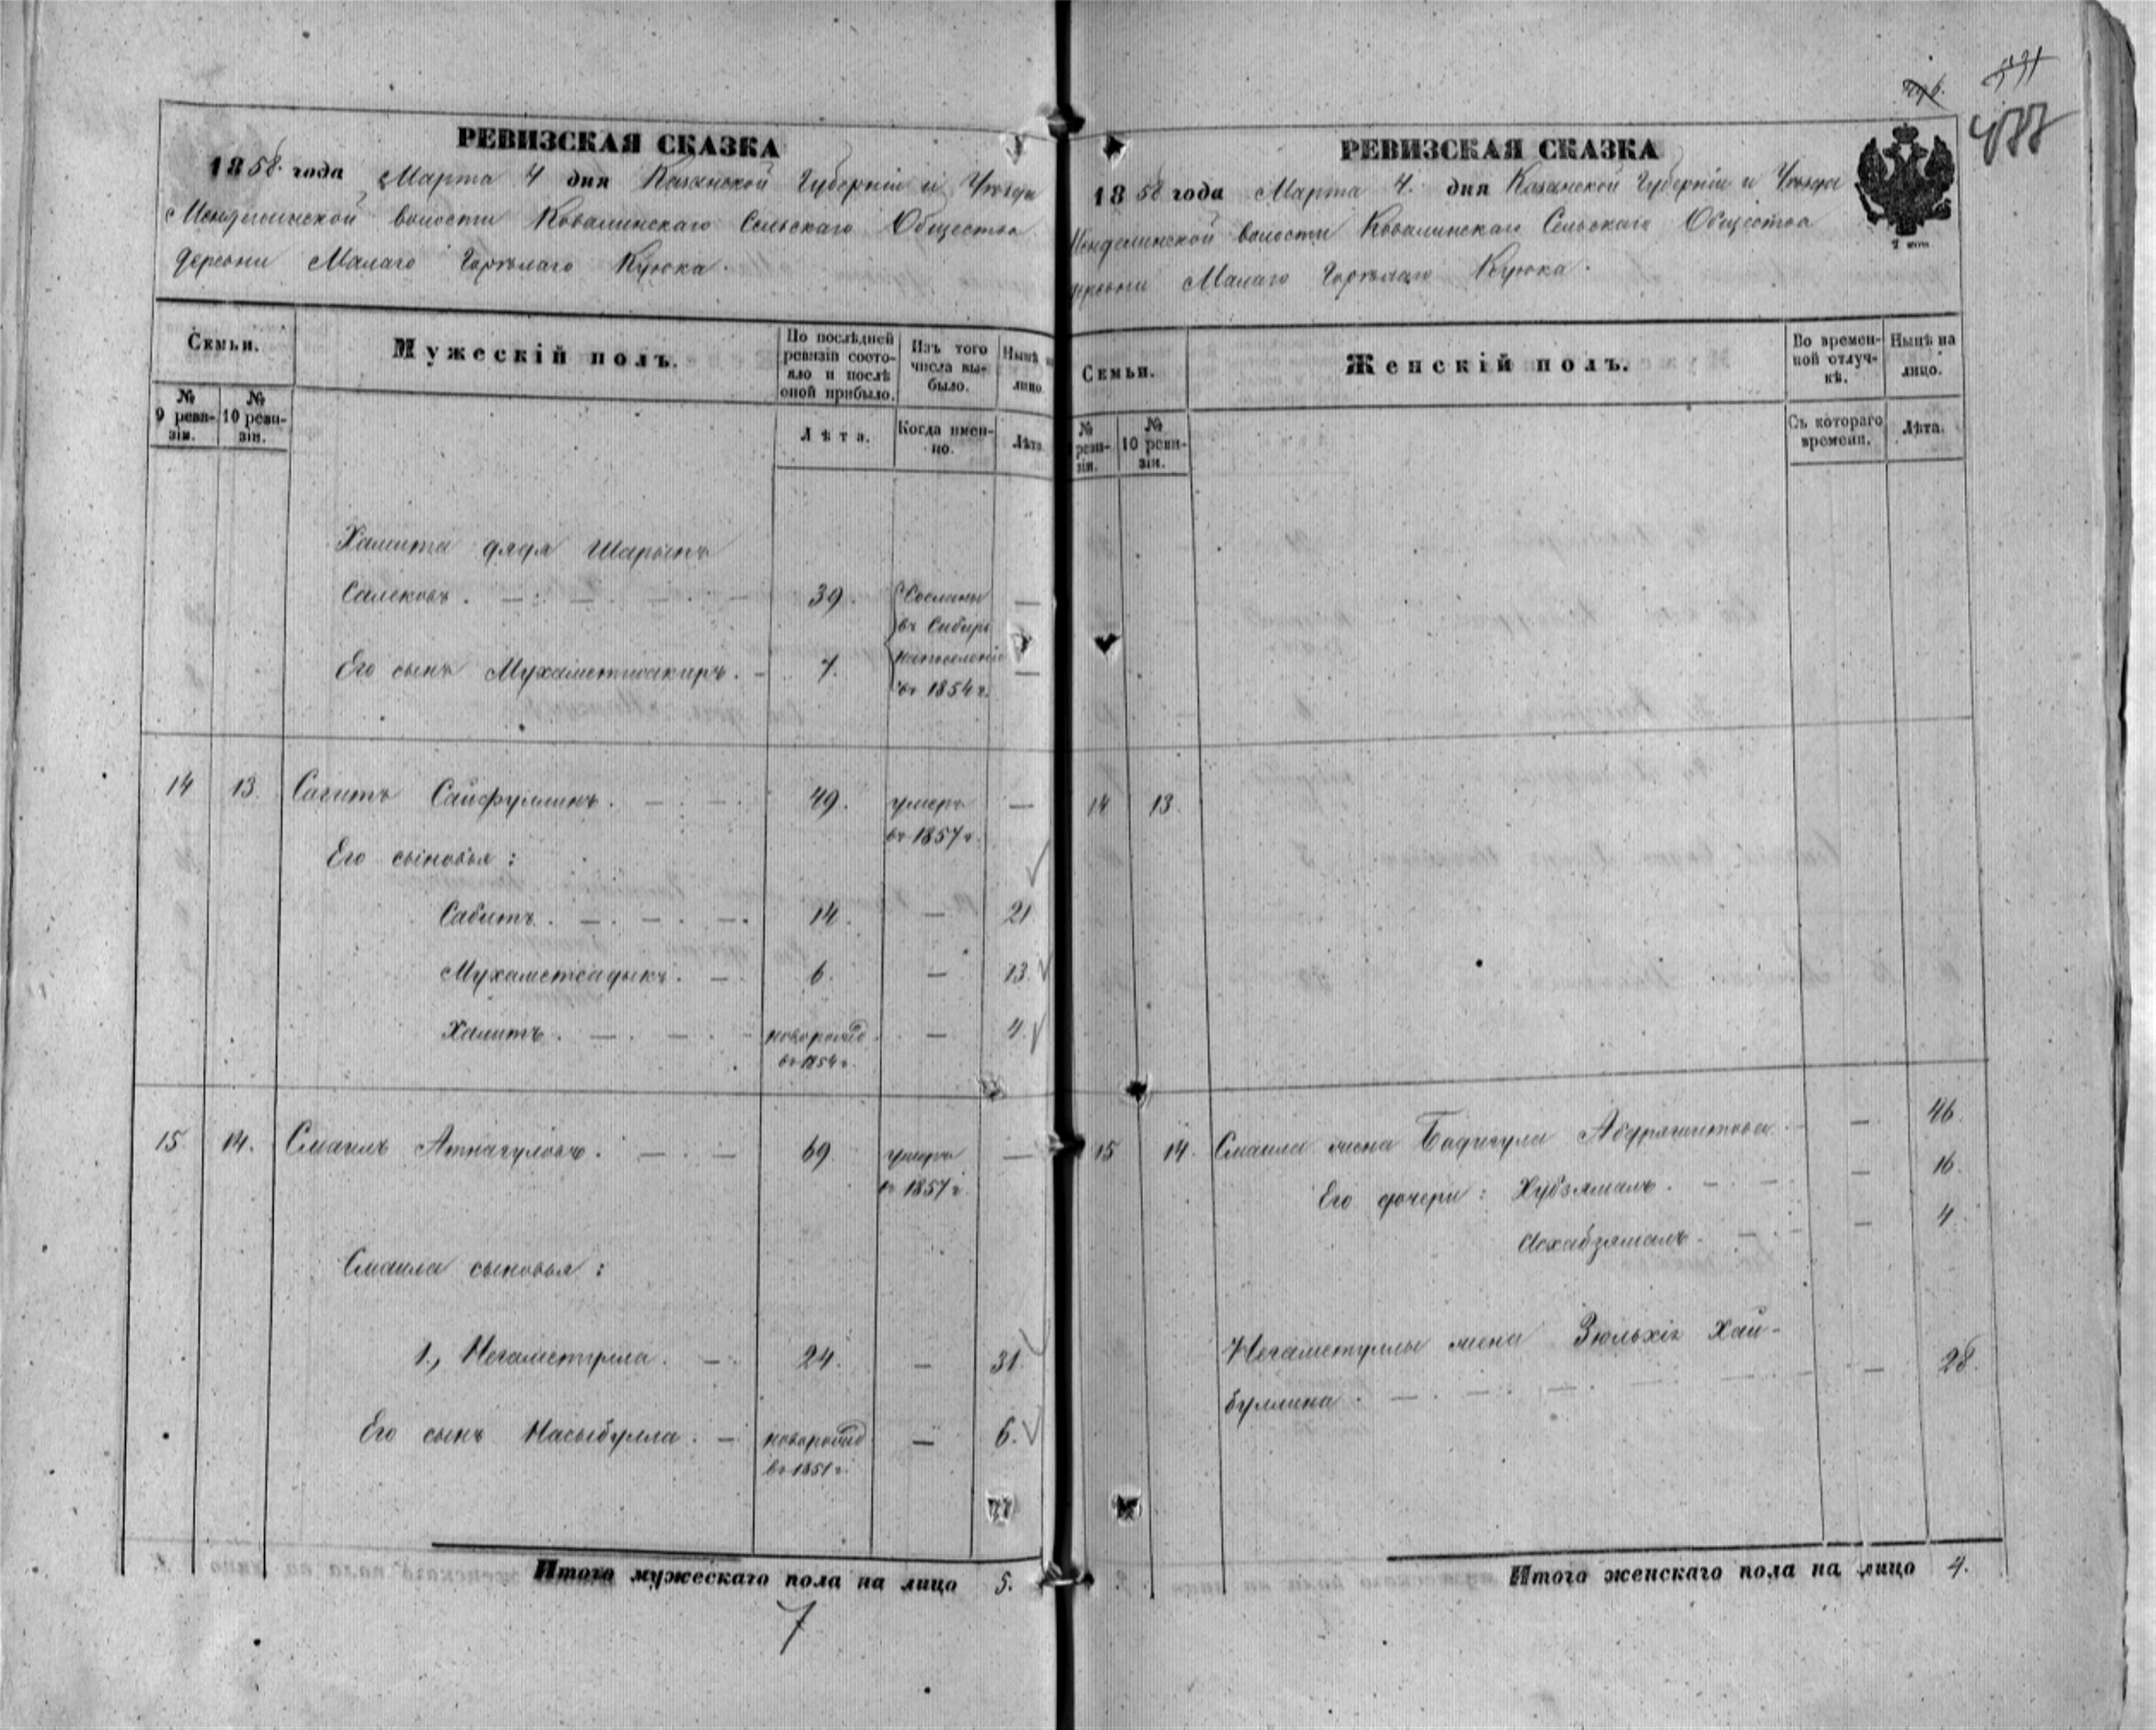 477
488
РЕВИЗСКАЯ СКАЗКА
1858 года Марта 4 дня Казанской Губерніи и Уѣзда
волости Ковалинскаго Сельскаго Общества
деревни Малаго Горѣлаго Куюка.
Семьи.
Мужескій полъ.
По послѣдней ревизіи состояло и послѣ оной прибыло.
Изъ того числа выбыло.
Нынѣ на лицо.
№ 9 ревизіи.
№ 10 ревизіи.
Лѣта.
Когда именно.
Лѣта.
Хамита дядя
Салековъ . — . — . — . — 39. Сосланы въ Сибирь —
Его сынъ Мухаметшакиръ . — 7. на поселеніе въ 1854 г. —
14 13. Сагитъ Сайфуллинъ . — . — . 49. умеръ въ 1857 г. —
Его сыновья :
Сабитъ . — . — . — . 14. — 21
Мухаметсадыкъ . — . 6. — 13.
Халитъ . — . — . — новорожд. въ 1854 г. — 4.
15 14. Смаилъ Атнагуловъ . — . — 69. умеръ въ 1857 г. —
Смаила сыновья :
1., Негаметулла . — . 24. — 31.
Его сынъ Насыбулла . — новорожд въ 1851 г. — 6.
Итого мужескаго пола на лицо 5.
7
РЕВИЗСКАЯ СКАЗКА
1858 года Марта 4. дня Казанской Губерніи и Уѣзда
волости Ковалинскаго Сельскаго Общества
деревни Малаго Горѣлаго Куюка.
Семьи.
Женскій полъ.
Во временной отлучкѣ.
Нынѣ на лицо.
№ ревизіи.
№ 10 ревизіи.
Съ котораго времени.
Лѣта.
14 13.
15 14. Смаила жена Бадигула Абдряшитова . — 46.
Его дочери : Хубзямалъ . — . — . — 16.
Асхабзямалъ . — . — — 4
Негаметуллы жена Зюльхія Хай-
буллина . — . — . — . — . — — 28.
Итого женскаго пола на лицо 4.